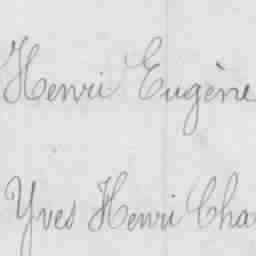 Henri Eugène
Yves Henri Cha